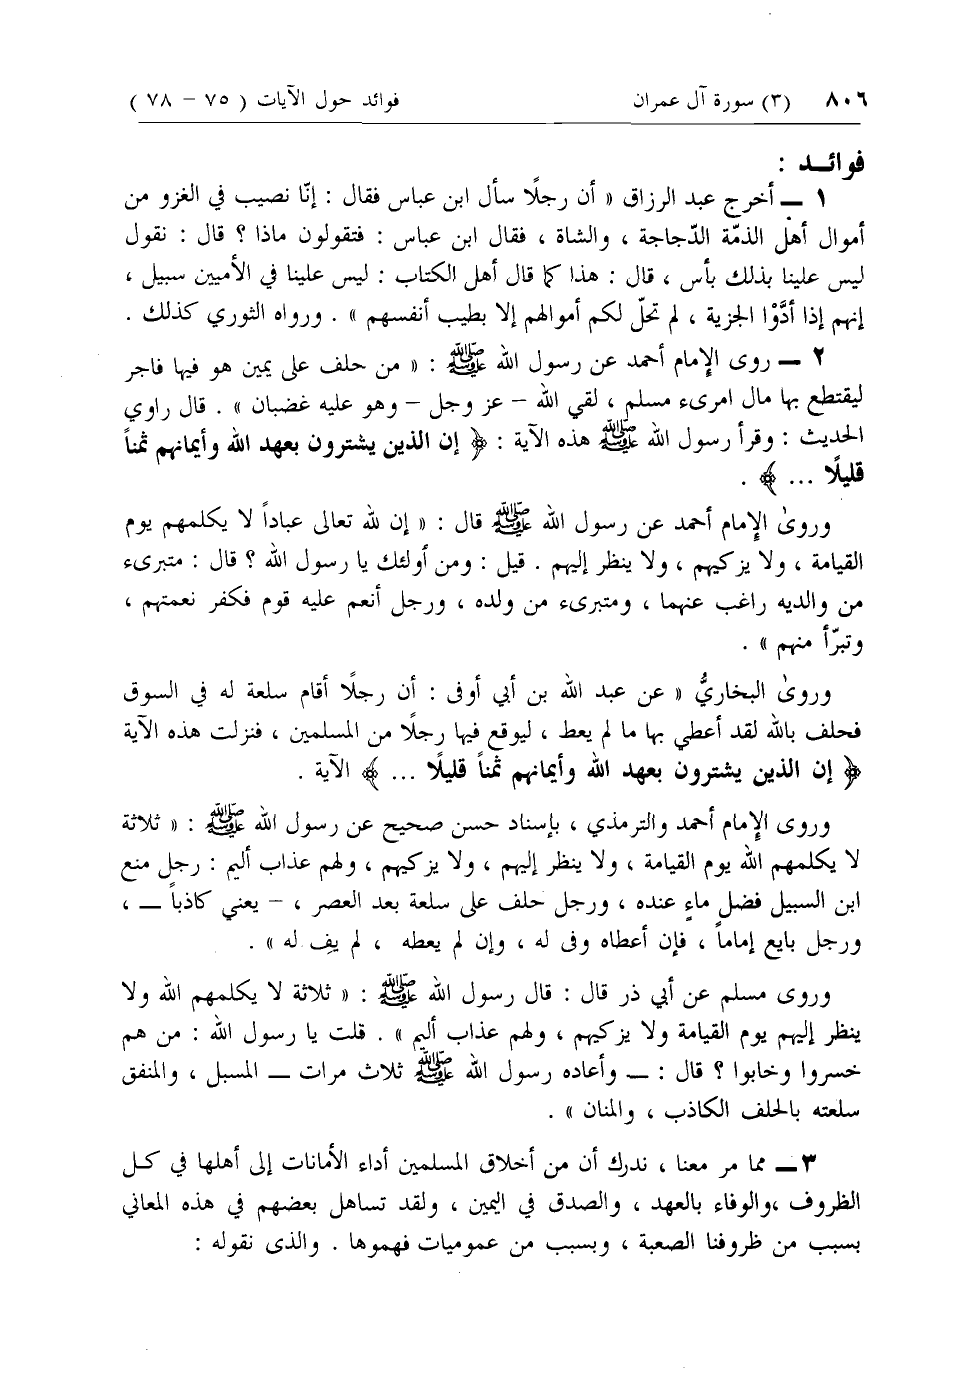 ٨٠٦ (٣) سورة آل عمران فوائد حول الآيات ( ٧٥ – ٧٨ )
فوائــد :
١ ــ أخرج عبد الرزاق « أن رجلًا سأل ابن عباس فقال : إنّا نصيب في الغزو من
أموال أهل الذمّة الدّجاجة ، والشاة ، فقال ابن عباس : فتقولون ماذا ؟ قال : نقول
ليس علينا بذلك بأس ، قال : هذا كما قال أهل الكتاب : ليس علينا في الأميين سبيل ،
إنهم إذا أدَّوْا الجزية ، لم تحلّ لكم أموالهم إلا بطيب أنفسهم » . ورواه الثوري كذلك .
٢ ــ روى الإمام أحمد عن رسول الله ﷺ : « من حلف على يمين هو فيها فاجر
ليقتطع بها مال امرىء مسلم ، لقي الله – عز وجل – وهو عليه غضبان » . قال راوي
الحديث : وقرأ رسول الله ﷺ هذه الآية : ﴿ إن الذين يشترون بعهد الله وأيمانهم ثمناً
قليلًا ... ﴾ .
وروىٰ الإمام أحمد عن رسول الله ﷺ قال : « إن لله تعالى عباداً لا يكلمهم يوم
القيامة ، ولا يزكيهم ، ولا ينظر إليهم . قيل : ومن أولئك يا رسول الله ؟ قال : متبرىء
من والديه راغب عنهما ، ومتبرىء من ولده ، ورجل أنعم عليه قوم فكفر نعمتهم ،
وتبرّأ منهم » .
وروىٰ البخاريُّ « عن عبد الله بن أبي أوفى : أن رجلًا أقام سلعة له في السوق
فحلف بالله لقد أعطي بها ما لم يعط ، ليوقع فيها رجلًا من المسلمين ، فنزلت هذه الآية
﴿ إن الذين يشترون بعهد الله وأيمانهم ثمناً قليلًا ... ﴾ الآية .
وروى الإمام أحمد والترمذي ، بإسناد حسن صحيح عن رسول الله ﷺ : « ثلاثة
لا يكلمهم الله يوم القيامة ، ولا ينظر إليهم ، ولا يزكيهم ، ولهم عذاب أليم : رجل منع
ابن السبيل فضل ماءٍ عنده ، ورجل حلف على سلعة بعد العصر ، – يعني كاذباً ــ ،
ورجل بايع إماماً ، فإن أعطاه وفى له ، وإن لم يعطه ، لم يفِ له » .
وروى مسلم عن أبي ذر قال : قال رسول الله ﷺ : « ثلاثة لا يكلمهم الله ولا
ينظر إليهم يوم القيامة ولا يزكيهم ، ولهم عذاب أليم » . قلت يا رسول الله : من هم
خسروا وخابوا ؟ قال : ــ وأعاده رسول الله ﷺ ثلاث مرات ــ المسبل ، والمنفق
سلعته بالحلف الكاذب ، والمنان » .
٣ــ مما مر معنا ، ندرك أن من أخلاق المسلمين أداء الأمانات إلى أهلها في كـل
الظروف ،والوفاء بالعهد ، والصدق في اليمين ، ولقد تساهل بعضهم في هذه المعاني
بسبب من ظروفنا الصعبة ، وبسبب من عموميات فهموها . والذى نقوله :